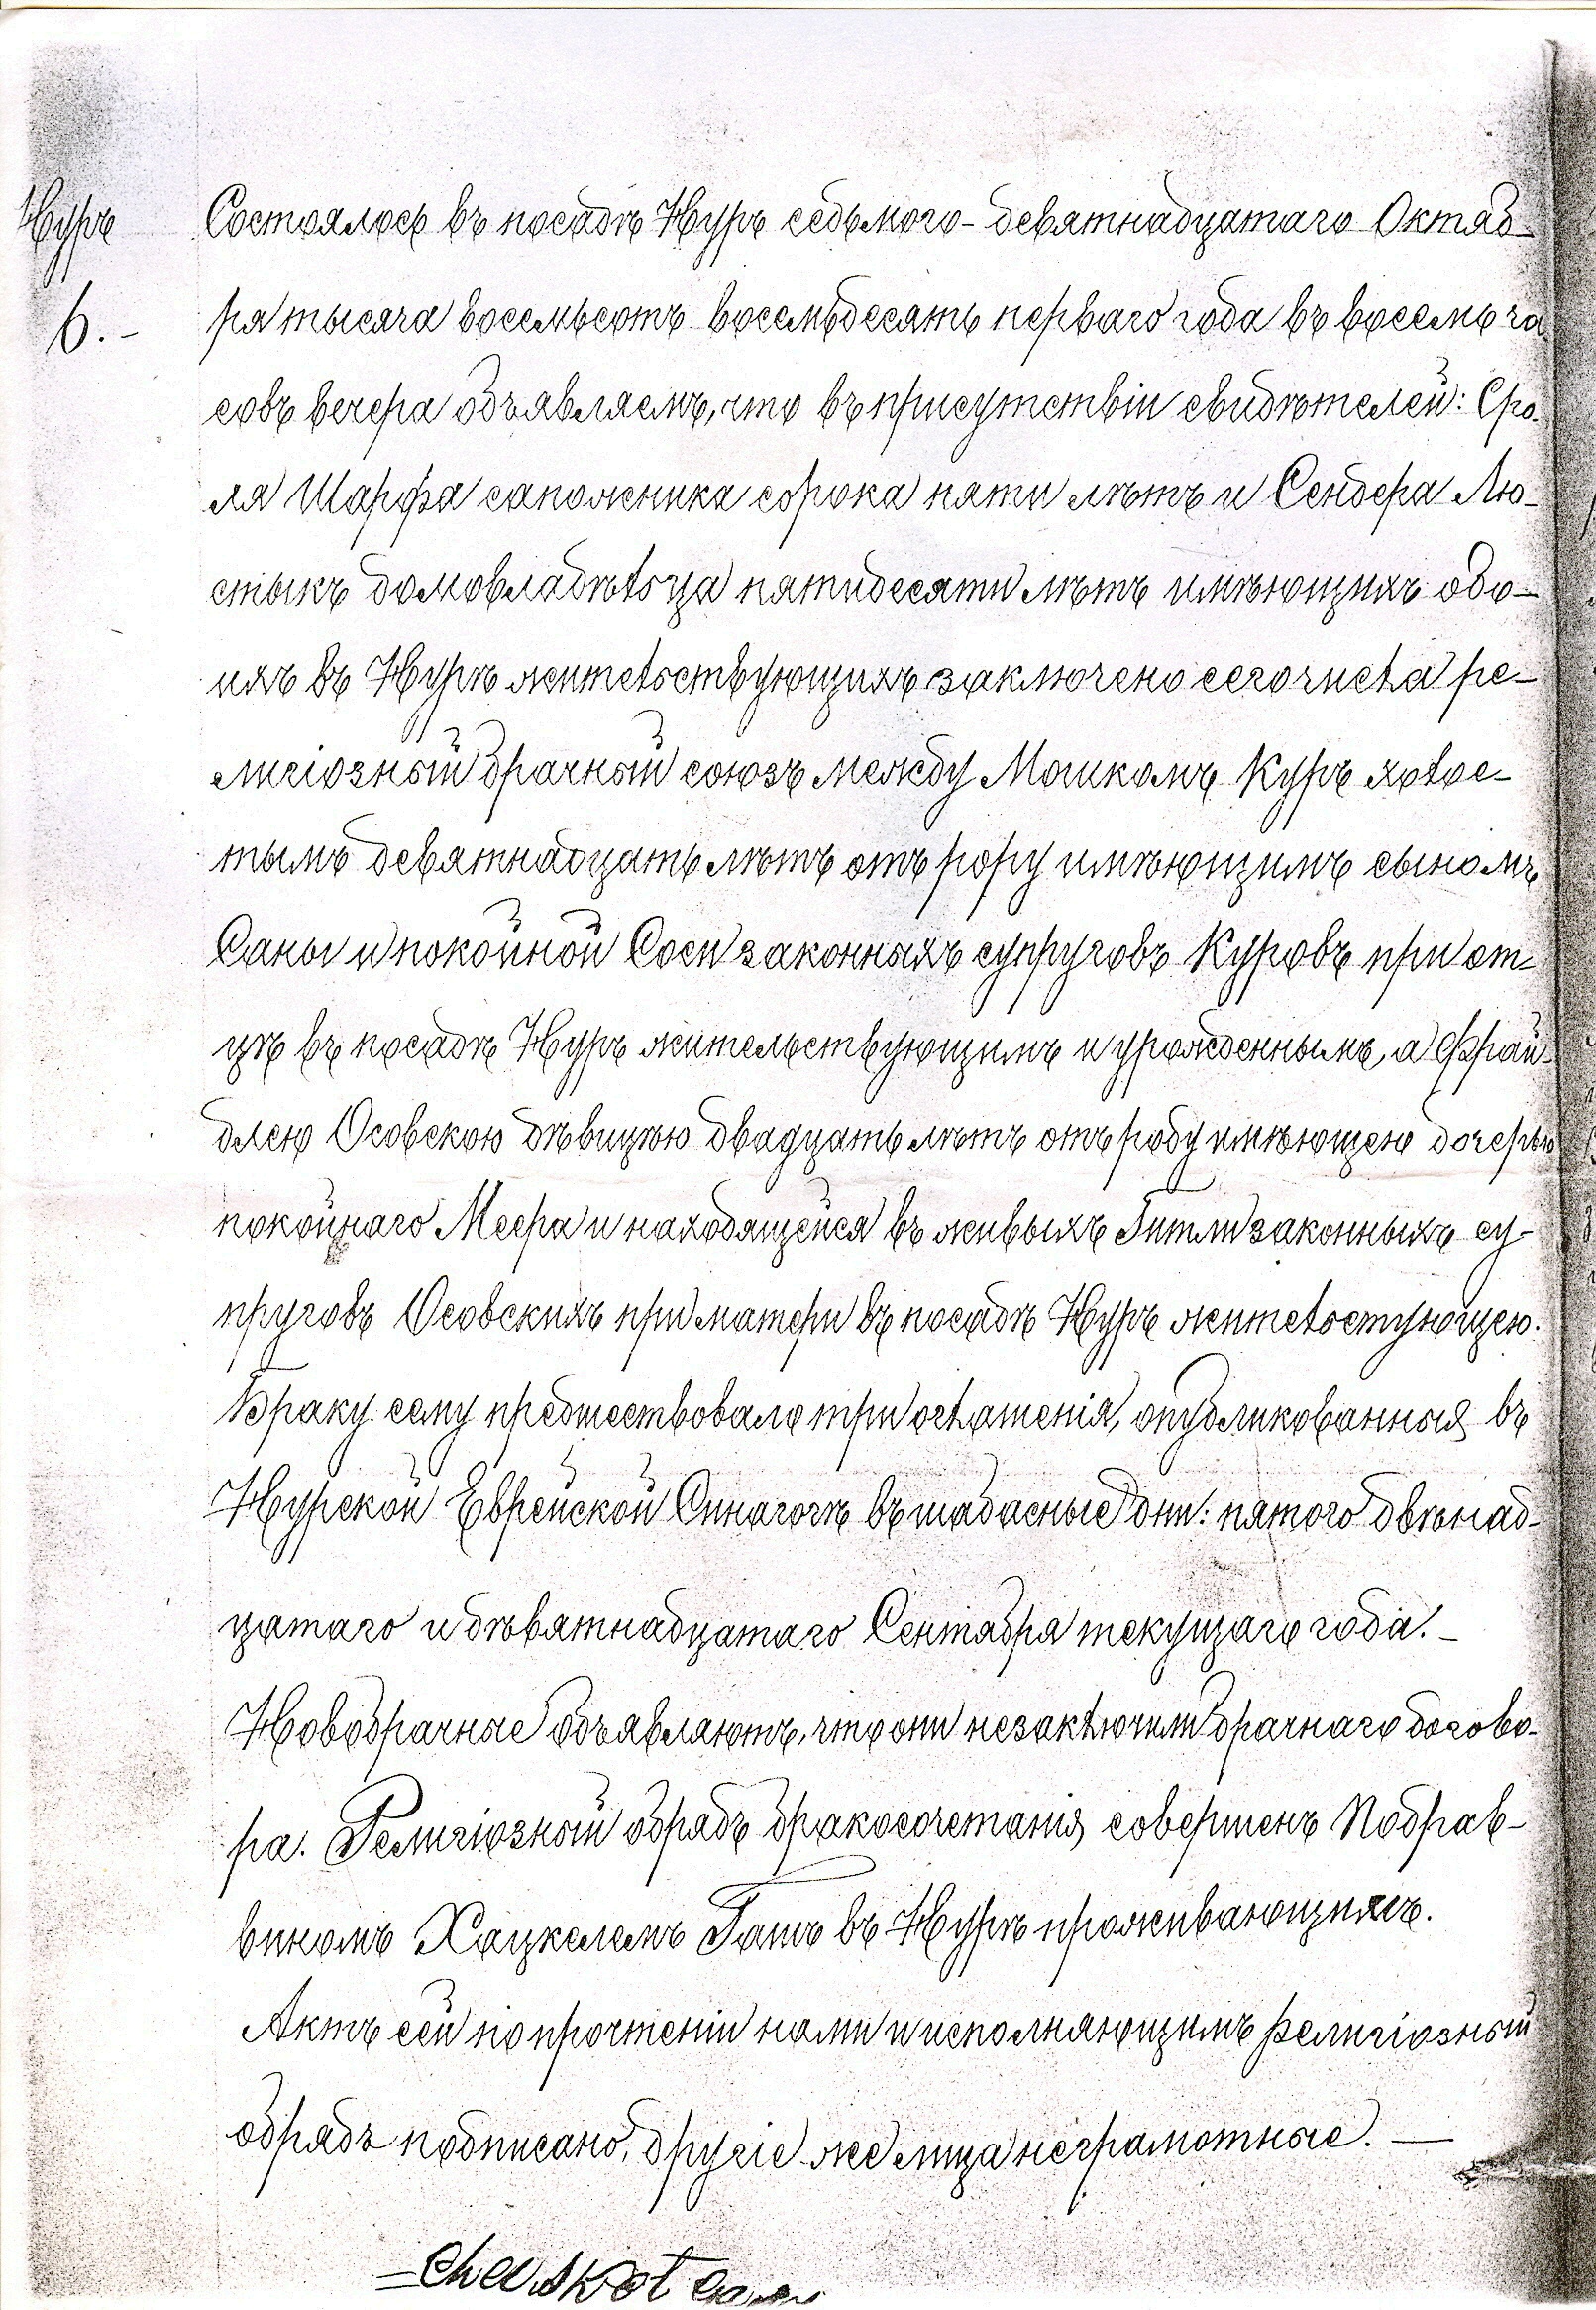 Нуръ
6.-
Состоялось въ посадѣ Нуръ седьмого-девятнадцатаго Октяб-
ря тысяча восемьсотъ восемьдесятъ перваго года въ восемь ча-
совъ вечера объявляемъ, что въ присутствіи свидѣтелей: Сро-
ля Шарфа сапожника сорока пяти лѣтъ и Сендера Лю-
стыкъ домовладѣльца пятидесяти лѣтъ имѣющихъ обо-
ихъ въ Нурѣ жительствующихъ заключено сего числа ре-
лигіозный брачный союзъ между Мошкомъ Куръ холос-
тымъ девятнадцать лѣтъ отъ рору имѣющимъ сыномъ
Саны и покойной Соси законныхъ супруговъ Куровъ при от-
цѣ въ посадѣ Нуръ жительствующимъ и урожденнымъ, а Фрай-
длею Осовскою дѣвицѣю двадцать лѣтъ отъ роду имѣющею дочерью
покойнаго Меера и находящейся въ живыхъ Гитли законныхъ су-
пруговъ Осовскихъ при матери въ посадѣ Нуръ жительстующею.
Браку сему предшествовало три оглашенія, опубликованныя въ
Нурской Еврейской Синагогѣ въ шабасные дни: пятого двѣнад-
цатаго и дѣвятнадцатаго Сентября текущаго года.-
Новобрачные объявляютъ, что они незаключили брачнаго догово-
ра. Религіозный обрядъ бракосочетанія совершенъ Подрав-
виномъ Хацкелемъ Гатъ въ Нурѣ проживающимъ.
Актъ сей по прочтеніи нами и исполняющимъ религіозный
обрядъ подписано, другіе же лица неграмотные. —